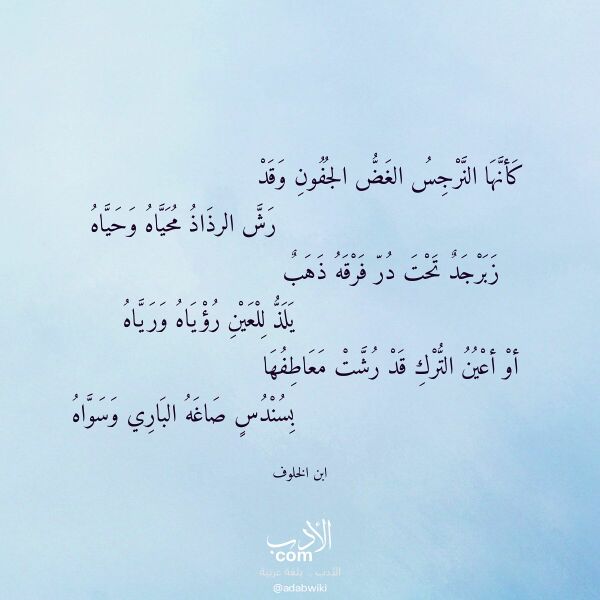 كَأنَّهَا النَّرْجِسُ الغَضُّ الجُفُونِ وَقَدْ
رَشَّ الرذَاذُ مُحَيَّاهُ وَحَيَّاهُ
زَبَرْجَدٌ تَحْتَ دُرّ فَرْقَهُ ذَهَبٌ
يَلَذُّ لِلْعَيْنِ رُؤْيَاهُ وَرَيَّاهُ
أوْ أعْيُنُ التُّرْكِ قَدْ رُشَّتْ مَعَاطِفُهَا
بِسُنْدُسٍ صَاغَهُ البَارِي وَسَوَّاهُ
ابن الخلوف
الأدب
com
الأدب .. بلغة عربية
@adabwiki